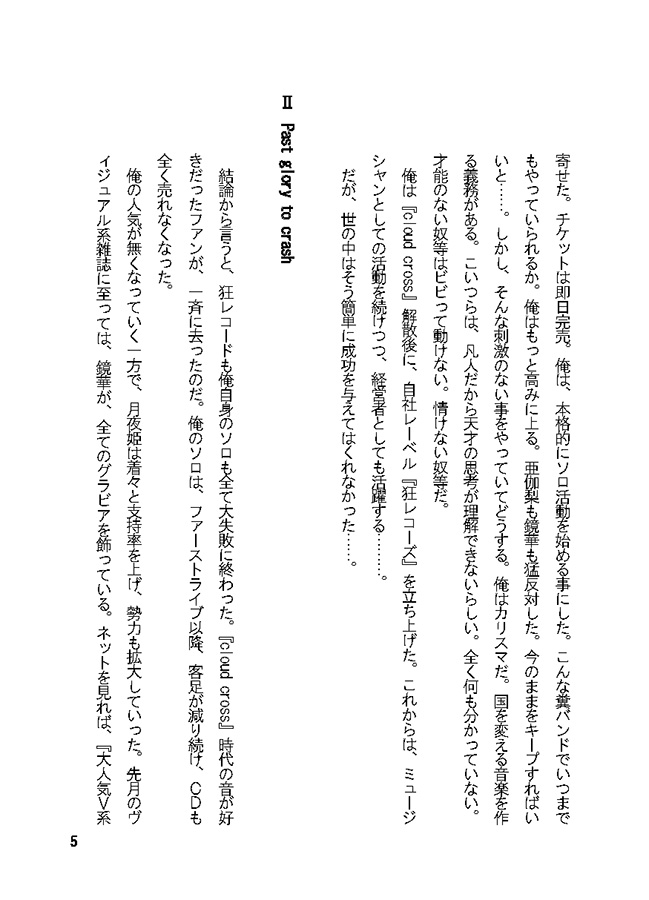 寄せた。チケットは即日完売。俺は、本格的にソロ活動を始める事にした。こんな糞バンドでいつまで
もやっていられるか。俺はもっと高みに上る。亜伽梨も鏡華も猛反対した。今のままをキープすればい
いと……。しかし、そんな刺激のない事をやっていてどうする。俺はカリスマだ。国を変える音楽を作
る義務がある。こいつらは、凡人だから天才の思考が理解できないらしい。全く何も分かっていない。
才能のない奴等はビビって動けない。情けない奴等だ。
俺は『cloud cross』解散後に、自社レーベル『狂レコーズ』を立ち上げた。これからは、ミュージ
シャンとしての活動を続けつつ、経営者としても活躍する………。
だが、世の中はそう簡単に成功を与えてはくれなかった……。
Ⅱ Past glory to crash
結論から言うと、狂レコードも俺自身のソロも全て大失敗に終わった。『cloud cross』時代の音が好
きだったファンが、一斉に去ったのだ。俺のソロは、ファーストライブ以降、客足が減り続け、CDも
全く売れなくなった。
俺の人気が無くなっていく一方で、月夜姫は着々と支持率を上げ、勢力も拡大していった。先月のヴ
ィジュアル系雑誌に至っては、鏡華が、全てのグラビアを飾っている。ネットを見れば、『大人気V系
5